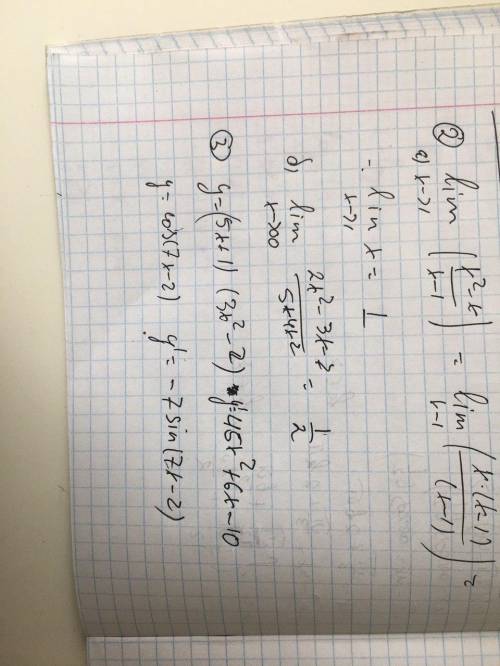 ② a) lim x→1 (x²-x / x-1) = lim x→1 (x·(x-1) / (x-1)) =
= lim x→1 x = 1
б) lim x→∞ 2x²-3x-7 / 5+4x² = 1/2
③ y=(5x+1)(3x²-2) y'=45x²+6x-10
y=cos(7x-2) y'=-7sin(7x-2)